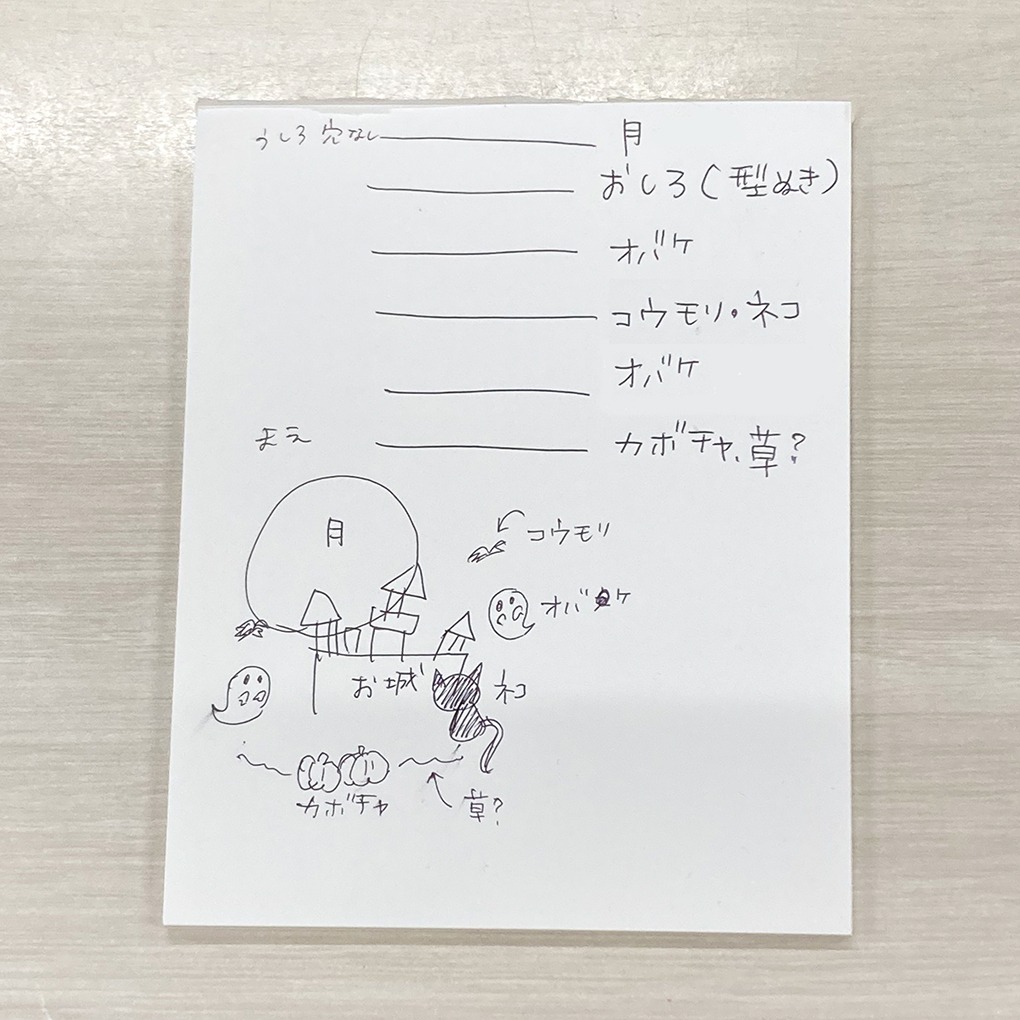 うしろ 穴なし 月
おしろ(型ぬき)
オバケ
コウモリ・ネコ
オバケ
まえ カボチャ、草?
月
コウモリ
オバケ
お城
ネコ
カボチャ
草?